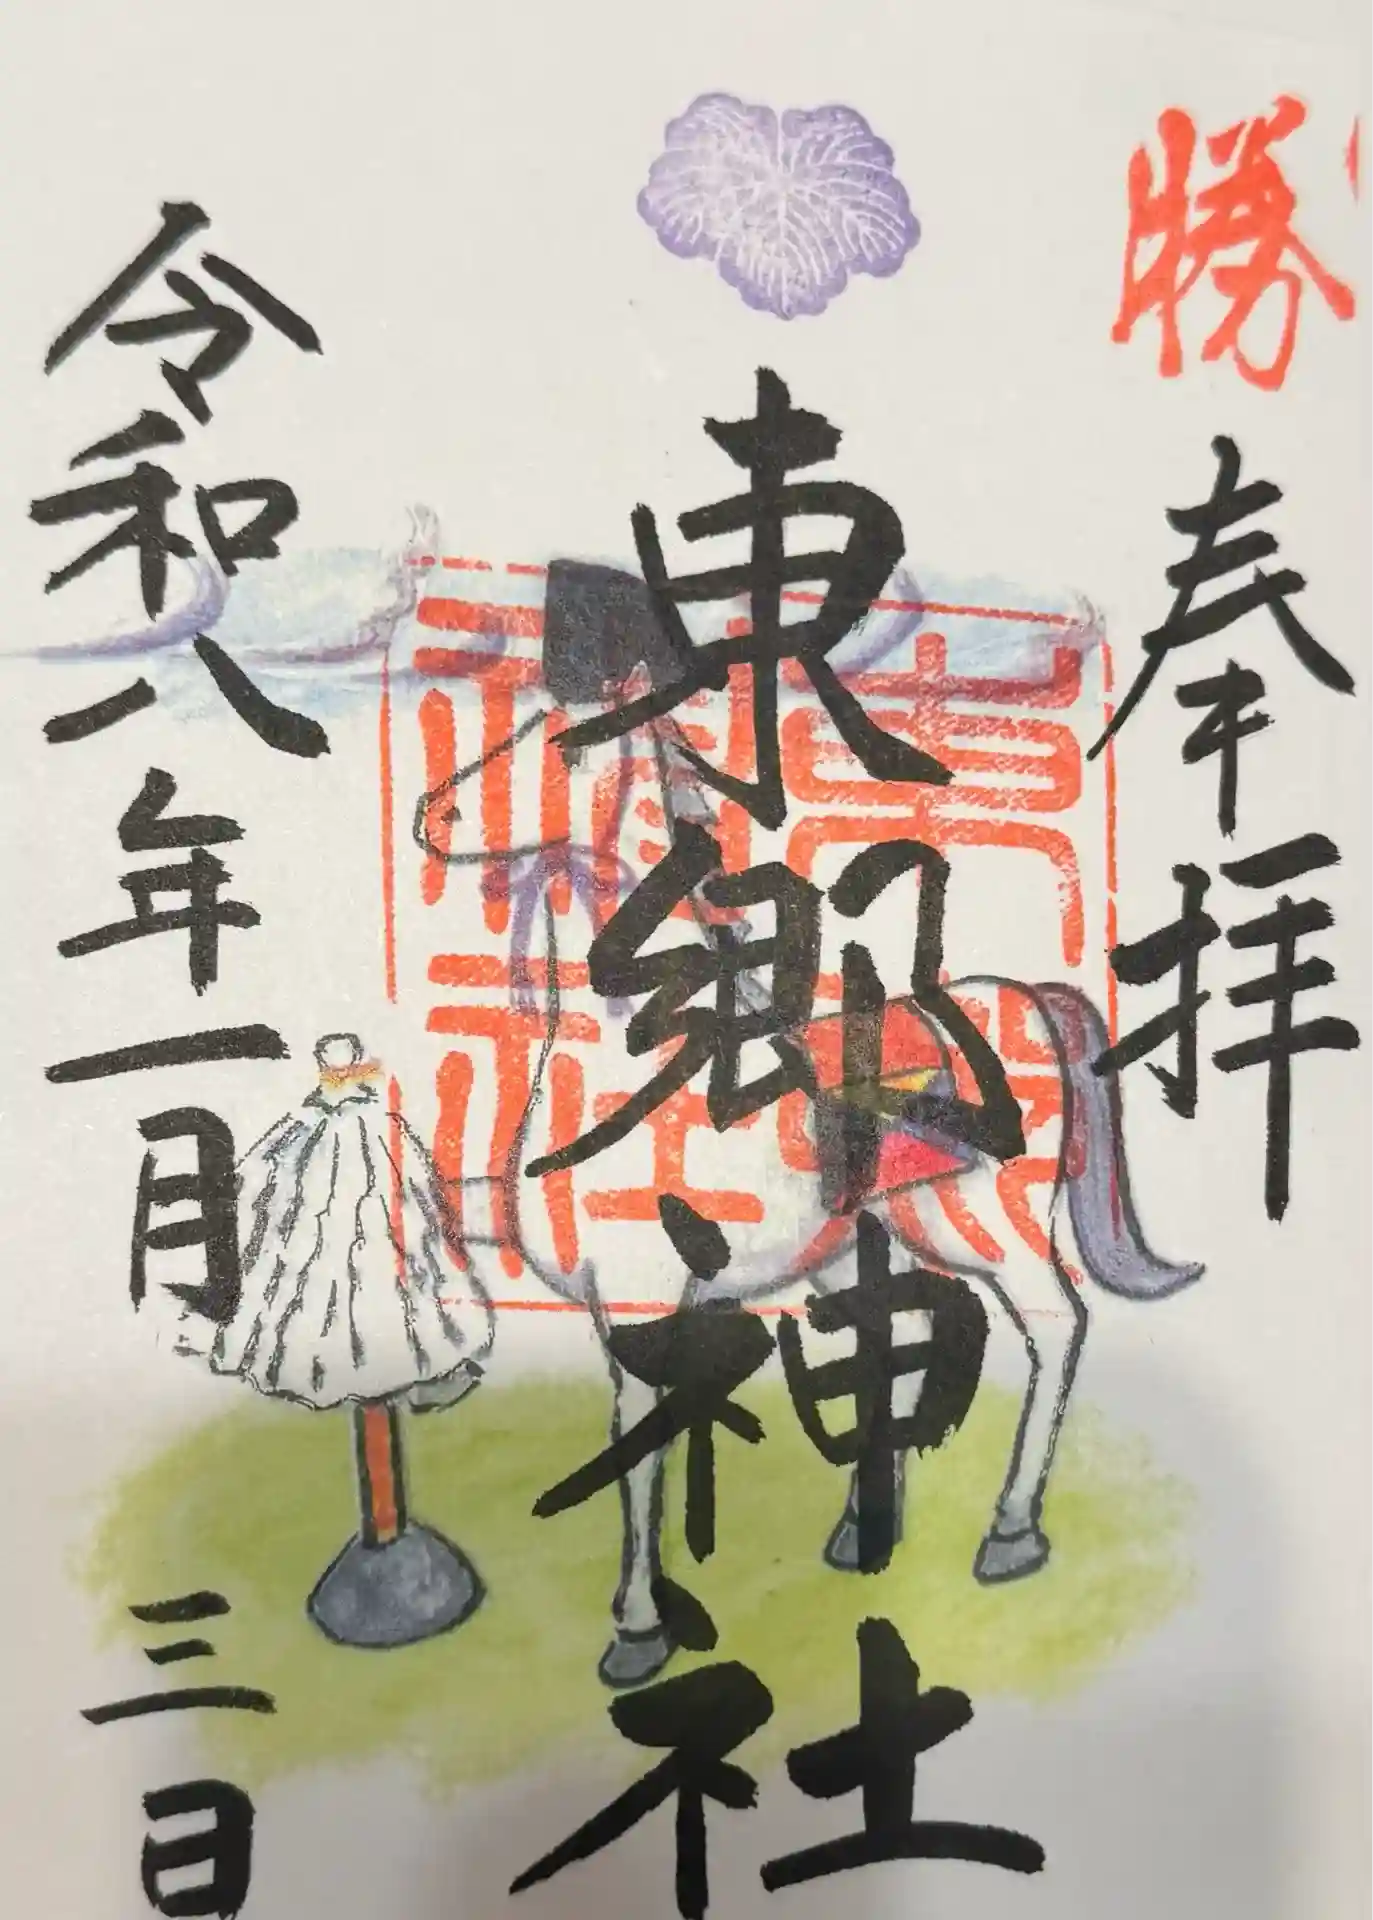 勝
奉拝
東郷神社
東郷神社
令和八年一月三日